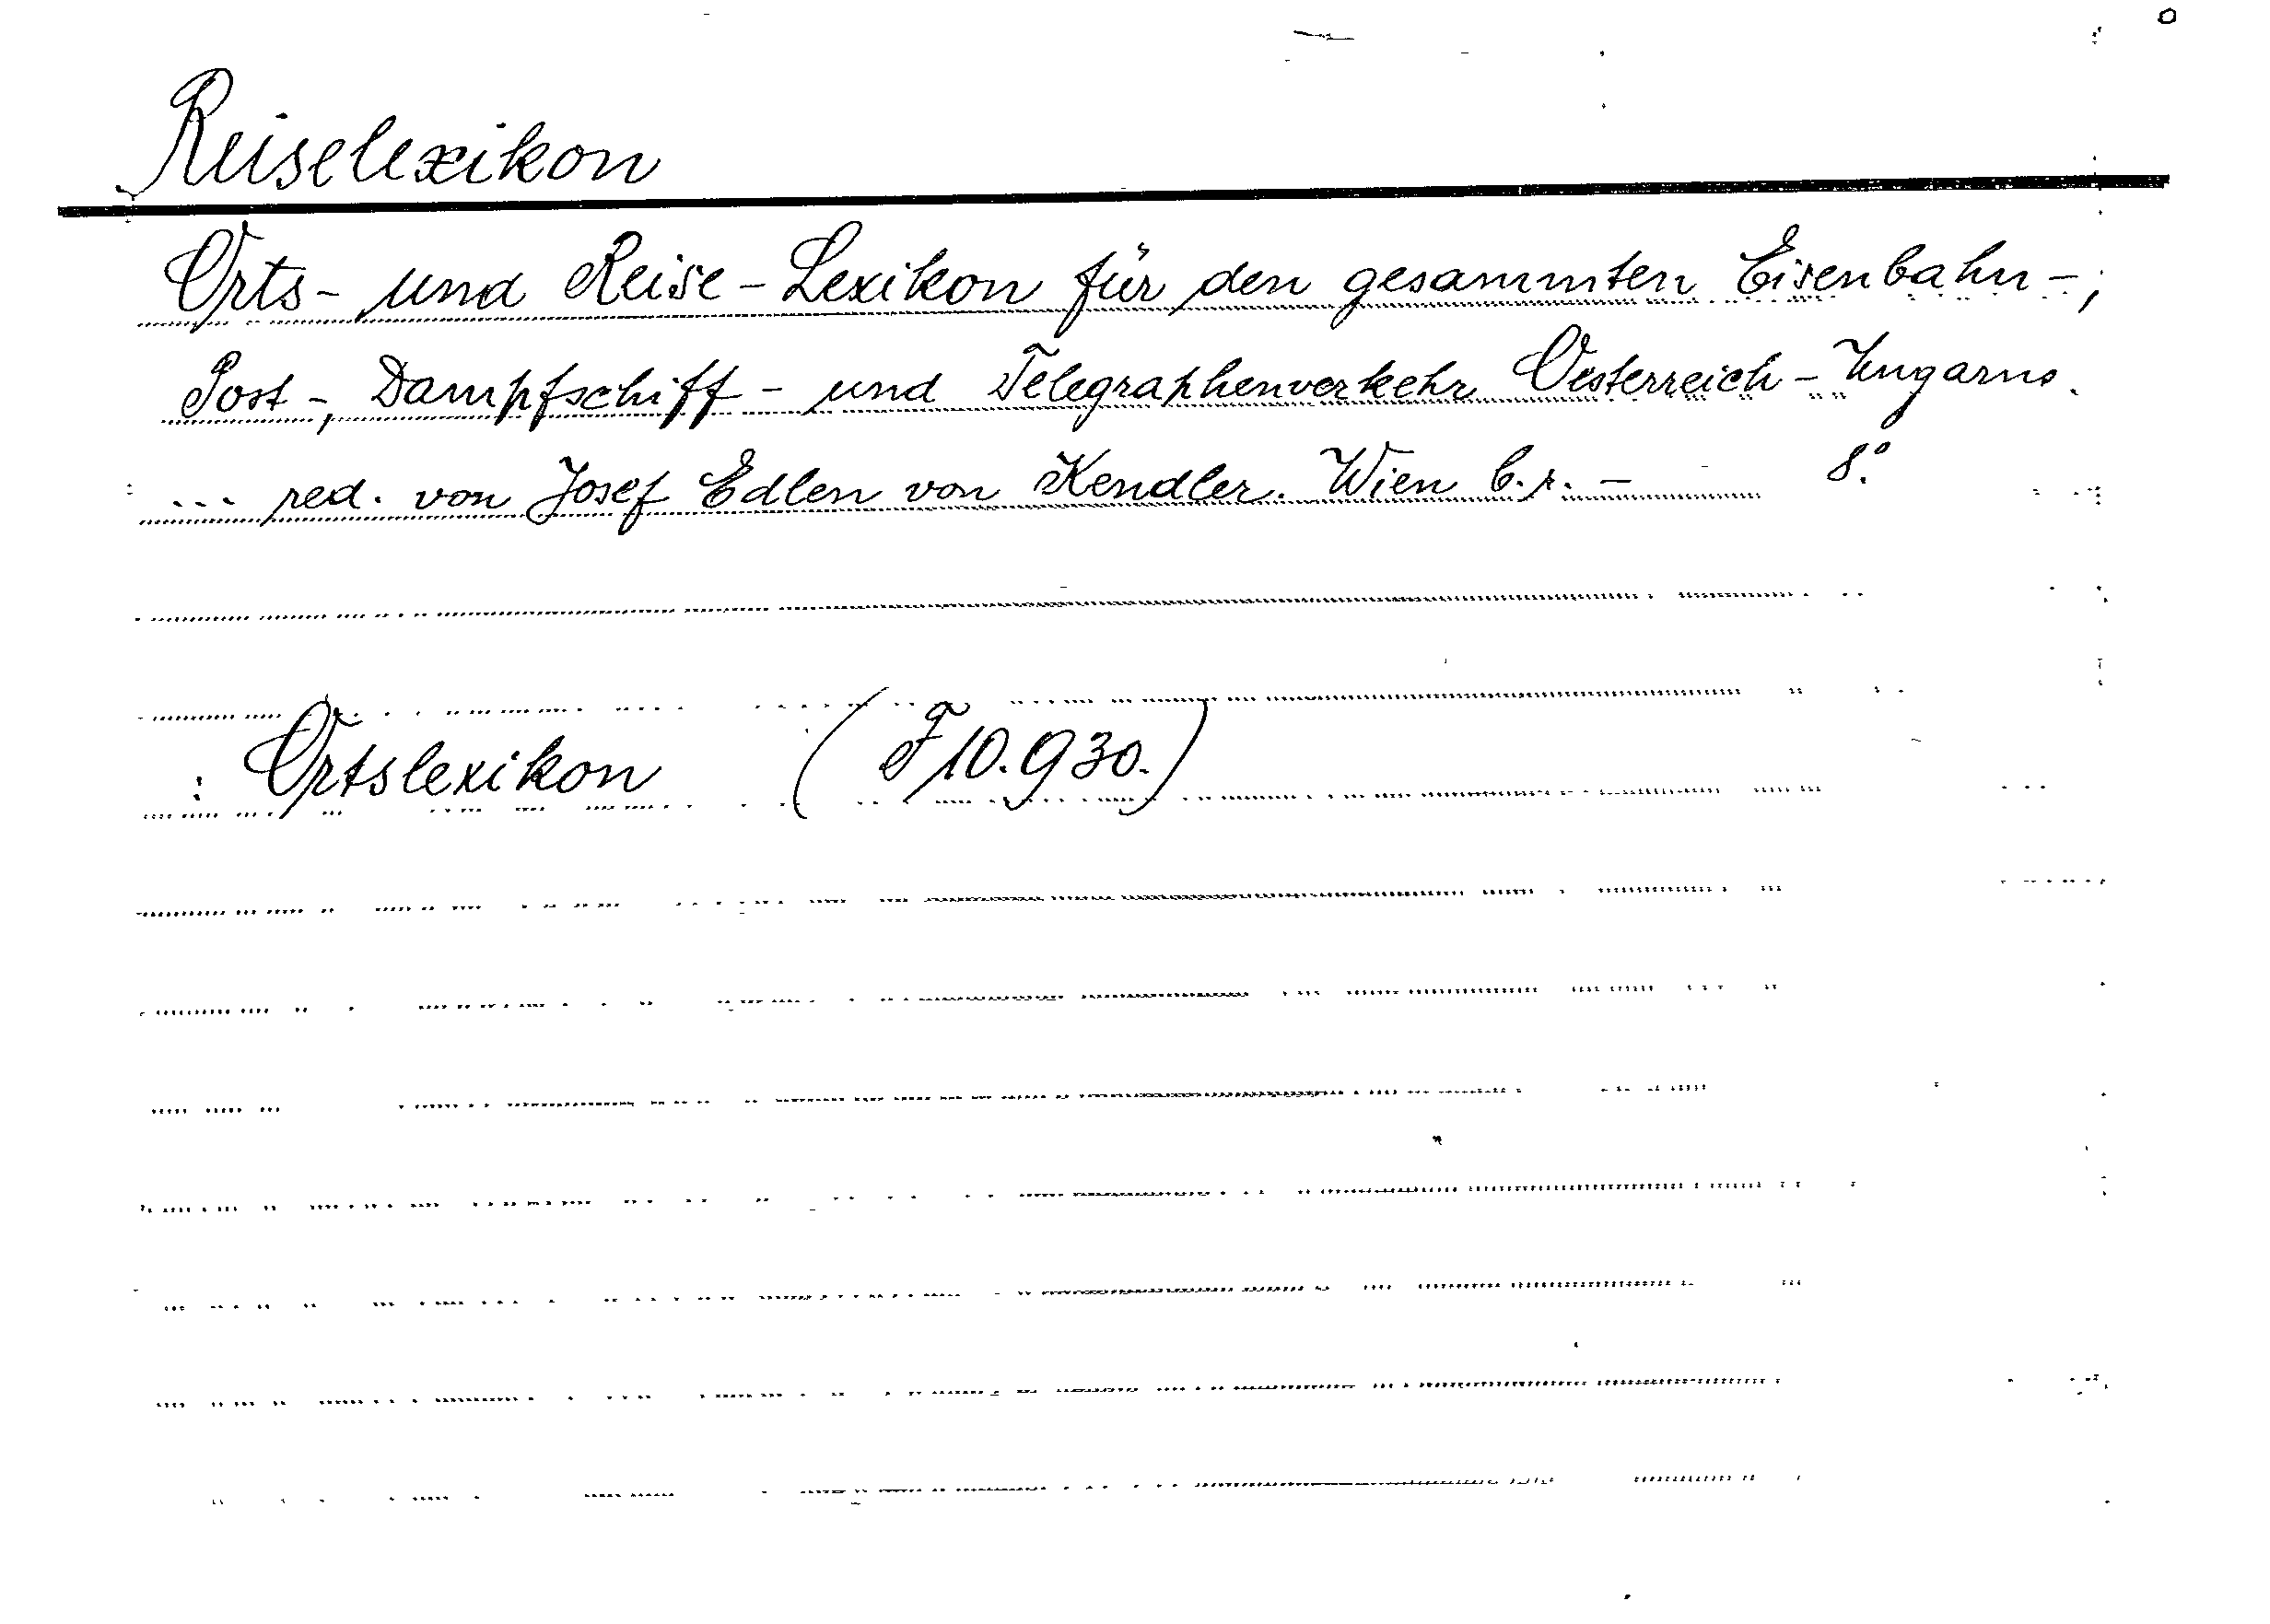 Reiselexikon
Orts- und Reise-Lexikon für den gesammten Eisenbahn-,
Post-, Dampfschiff- und Telegraphenverkehr Oesterreich-Ungarns.
... red. von Josef Edlen von Kendler. Wien b.r. - 8°.
: Ortslexikon (F 10.930.)